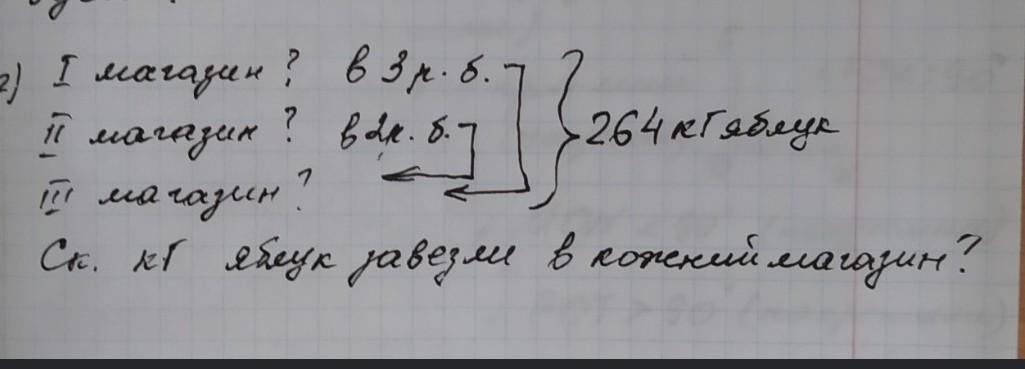 2) I магазин ? в 3 р. б. } 264 кг яблук
II магазин ? в 2 р. б.
III магазин ?
Ск. кг яблук завезли в кожний магазин?